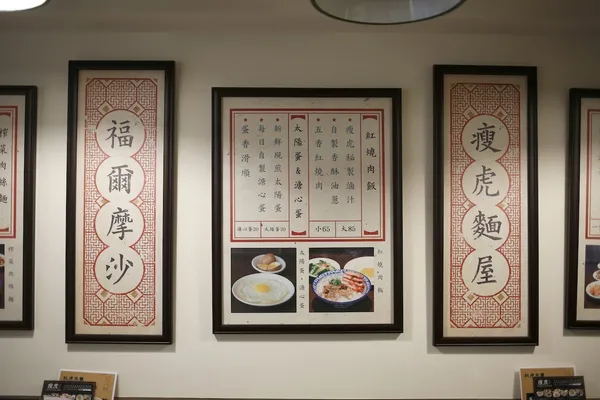 瘦虎麵屋
紅燒肉飯
瘦虎秘製滷汁
自製香酥油蔥
五香紅燒肉
大85
小65
太陽蛋&溏心蛋
新鮮現煎太陽蛋
每日自製溏心蛋
蛋香滑順
太陽蛋20
溏心蛋20
紅燒肉飯
太陽蛋・溏心蛋
福爾摩沙
榨菜肉絲麵